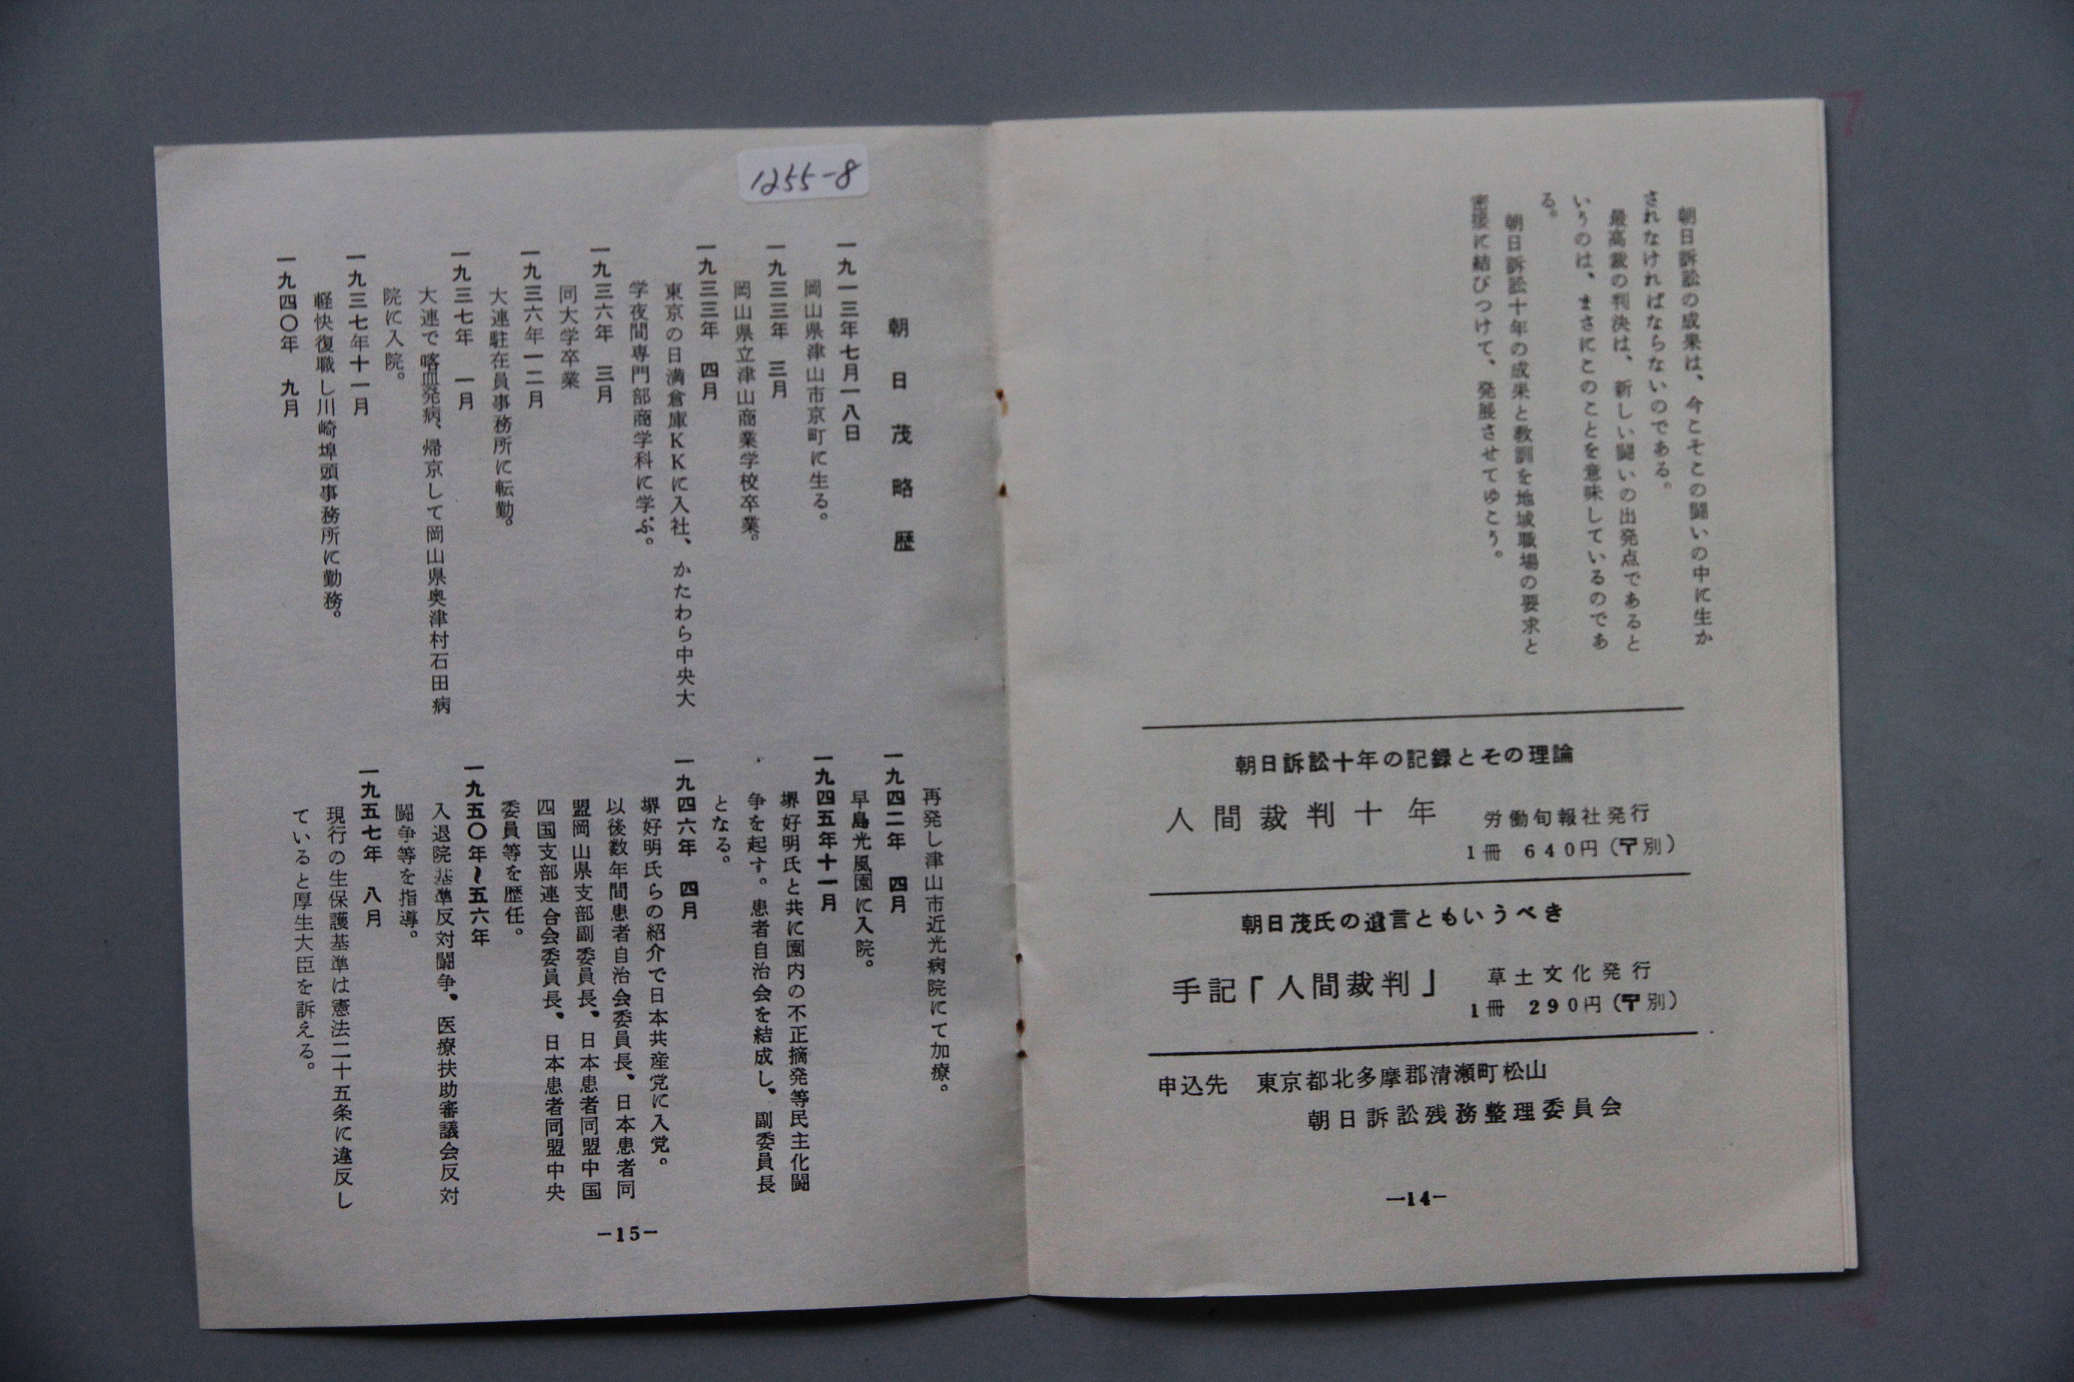 朝日訴訟の成果は、今こそこの闘いの中に生か
されなければならないのである。
最高裁の判決は、新しい闘いの出発点であると
いうのは、まさにこのことを意味しているのであ
る。
朝日訴訟十年の成果と教訓を地域職場の要求と
密接に結びつけて、発展させてゆこう。
朝日訴訟十年の記録とその理論
人間裁判十年
労働旬報社発行
1冊 640円(〒別)
朝日茂氏の遺言ともいうべき
手記「人間裁判」
草土文化発行
1冊 290円(〒別)
申込先 東京都北多摩郡清瀬町松山
朝日訴訟残務整理委員会
—14—
1255-8
朝日茂略歴
一九一三年七月一八日
岡山県津山市京町に生る。
一九三三年 三月
岡山県立津山商業学校卒業。
一九三三年 四月
東京の日満倉庫KKに入社、かたわら中央大
学夜間専門部商学科に学ぶ。
一九三六年 三月
同大学卒業
一九三六年一二月
大連駐在員事務所に転勤。
一九三七年 一月
大連で喀血発病、帰京して岡山県奥津村石田病
院に入院。
一九三七年十一月
軽快復職し川崎埠頭事務所に勤務。
一九四〇年 九月
再発し津山市近光病院にて加療。
一九四二年 四月
早島光風園に入院。
一九四五年十一月
堺好明氏と共に園内の不正摘発等民主化闘
争を起す。患者自治会を結成し、副委員長
となる。
一九四六年 四月
堺好明氏らの紹介で日本共産党に入党。
以後数年間患者自治会委員長、日本患者同
盟岡山県支部副委員長、日本患者同盟中国
四国支部連合会委員長、日本患者同盟中央
委員等を歴任。
一九五〇年~五六年
入退院基準反対闘争、医療扶助審議会反対
闘争等を指導。
一九五七年 八月
現行の生保護基準は憲法二十五条に違反し
ていると厚生大臣を訴える。
—15—